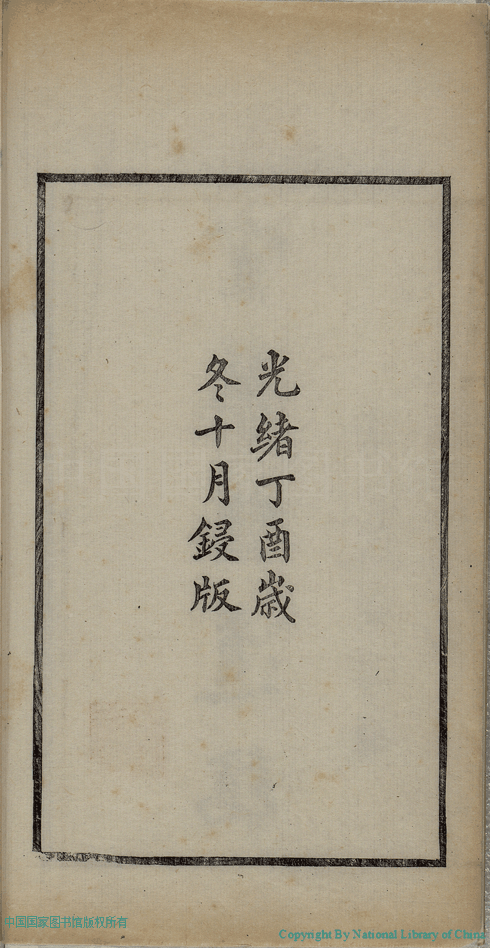 光緒丁酉歲
冬十月鋟版
中国国家图书馆版权所有
Copyright By National Library of China